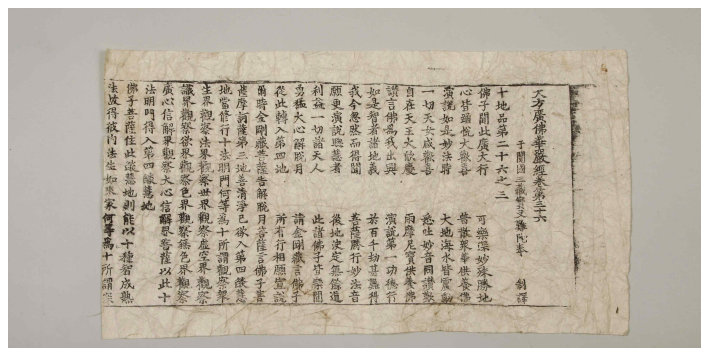 大方廣佛華嚴經卷第三十六
于闐國三藏實叉難陀奉 制譯
十地品第二十六之三
佛子聞此廣大行 可樂深妙殊勝地
心皆踊悅大歡喜 普散衆華供養佛
演說如是妙法時 大地海水皆震動
一切天女咸歡喜 悉吐妙音同讚歎
自在天王大欣慶 雨摩尼寶供養佛
讚言佛爲我出興 演說第一功德行
如是智者諸地義 於百千劫甚難得
我今忽然而得聞 菩薩勝行妙法音
願更演說聰慧者 後地決定無餘道
利益一切諸天人 此諸佛子皆樂聞
勇猛大心解脫月 請金剛藏言佛子
從此轉入第四地 所有行相願宣說
爾時金剛藏菩薩告解脫月菩薩言佛子菩
薩摩訶薩第三地善清淨已欲入第四焰慧
地當修行十法明門何等爲十所謂觀察衆
生界觀察法界觀察世界觀察虛空界觀察
識界觀察欲界觀察色界觀察無色界觀察
廣心信解界觀察大心信解界菩薩以此十
法明門得入第四焰慧地
佛子菩薩住此焰慧地則能以十種智成熟
法故得彼內法生如來家何等爲十所謂深